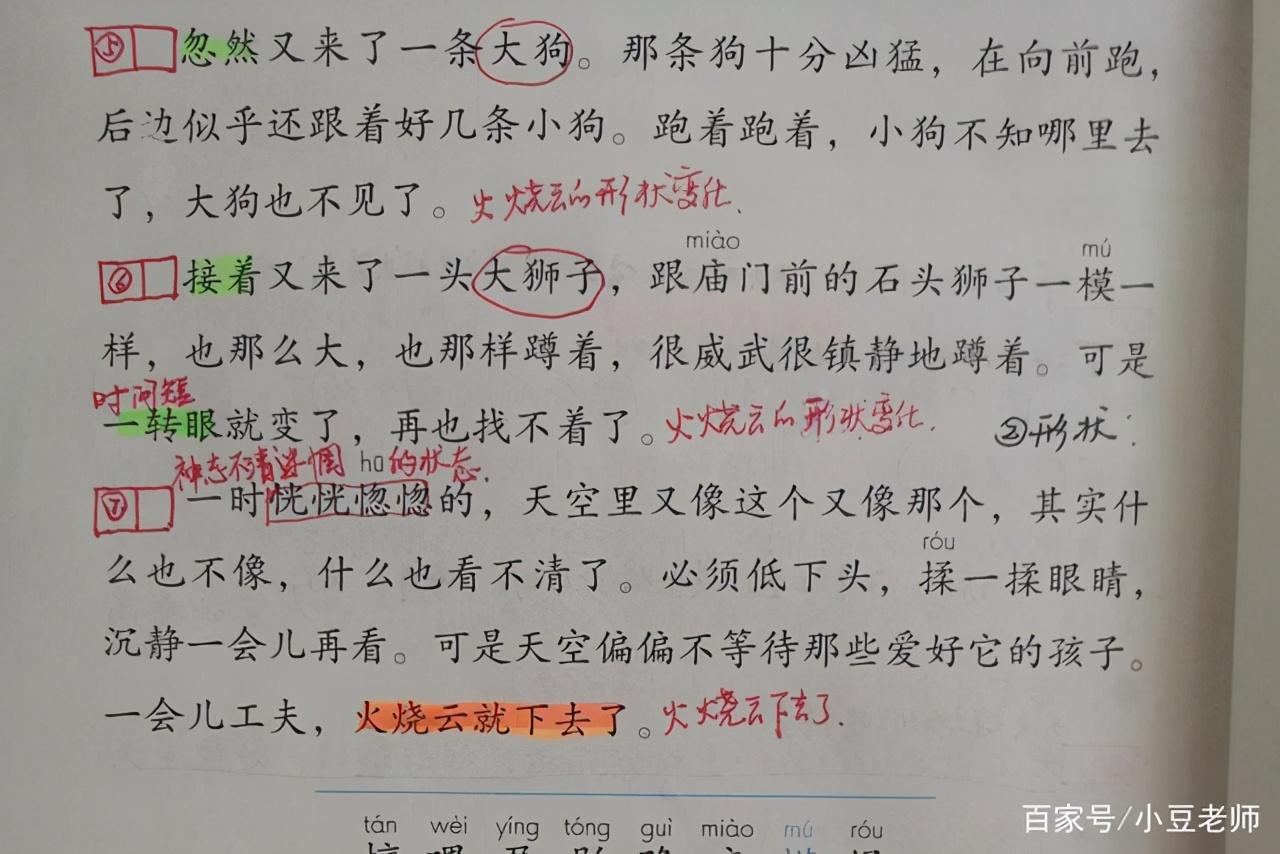 ⑤忽然又来了一条大狗。那条狗十分凶猛，在向前跑，
后边似乎还跟着好几条小狗。跑着跑着，小狗不知哪里去
了，大狗也不见了。火烧云的形状变化.
miào mú
⑥接着又来了一头大狮子，跟庙门前的石头狮子一模一
样，也那么大，也那样蹲着，很威武很镇静地蹲着。可是
时间短
一转眼就变了，再也找不着了。火烧云的形状变化. ②形状:
神态不清迷惘 hū的状态.
⑦一时恍恍惚惚的，天空里又像这个又像那个，其实什
róu
么也不像，什么也看不清了。必须低下头，揉一揉眼睛，
沉静一会儿再看。可是天空偏偏不等待那些爱好它的孩子。
一会儿工夫，火烧云就下去了。火烧云下去了.
tán wèi yíng tóng guì miào mú róu
百家号/小豆老师